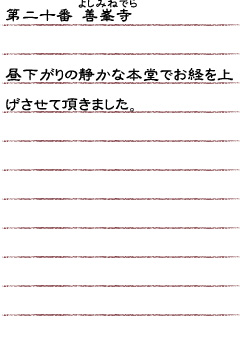 よしみねでら
第二十番 善峯寺
昼下がりの静かな本堂でお経を上
げさせて頂きました。